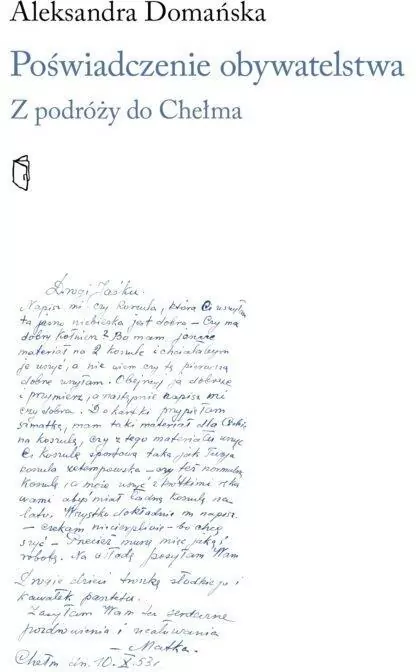 Aleksandra Domańska
Poświadczenie obywatelstwa
Z podróży do Chełma
Drogi Jaśku.
Napisz mi czy koszula, którą Ci uszyłam
ta jasno niebieska jest dobra – Czy ma
dobry kołnierz? Bo mam jeszcze
materiał na 2 koszule i chciałabym
je uszyć, a nie wiem czy tę pierwszą
dobrze uszyłam. Obejrzyj ją dobrze
i przymierz, a następnie napisz mi
czy dobra. Do kartki przypięłam
szmatkę, mam taki materiał dla Ciebie
na koszulę, czy z tego materiału uszyć
Ci koszulę sportową taką jak Twoja
koszula zetempowska – czy też normalną
koszulę, a może uszyć z krótkimi ręka
wami abyś miał ładną koszulę na
lato. Wszystko dokładnie m napisz.
– czekam niecierpliwie – bo chcę
szyć – Przecież muszę mieć jakąś
robotę. Na osłodę posyłam Wam
Drogie dzieci troszkę słodkiego i
kawałek
Zasyłam Wam serdeczne
pozdrowienia i ucałowania
– Matka.
Chełm dn. 10. X. 53 r.